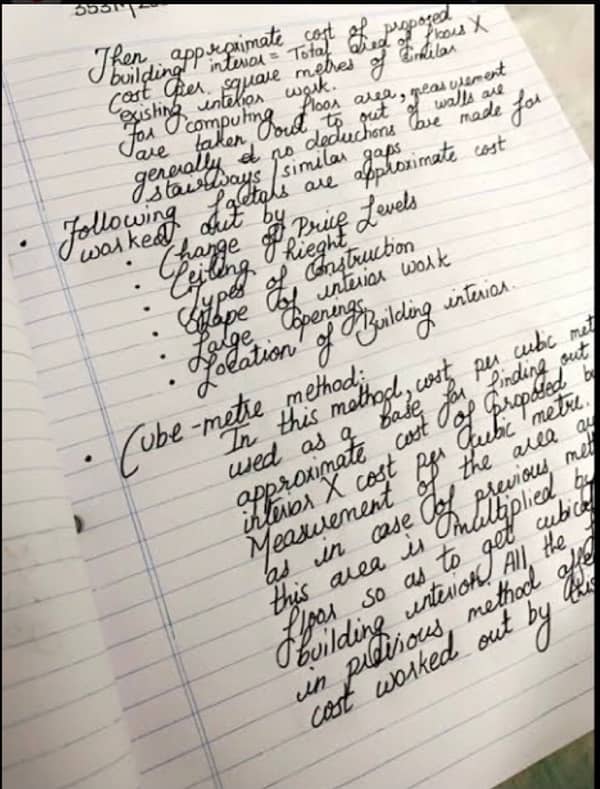 Then approximate cost of proposed
building interior = Total area of floors X
Cost per square metres of similar
existing interior work.
For computing floor area, measurement
are taken out to out of walls are
generally & no deductions are made for
stairways / similar gaps
• Following factors are approximate cost
worked out by
• Change of Price Levels
• Ceiling hieght
• Types of Construction
• Shape of interior work
• Large openings
• Location of Building interior.
• Cube-metre method:
In this method, cost per cubic met
used as a base for finding out
approximate cost of proposed b
interior X cost per cubic metre.
Measurement of the area a
as in case of previous met
this area is multiplied by
floor so as to get cubical
building interior. All the f
in previous method affe
cost worked out by this